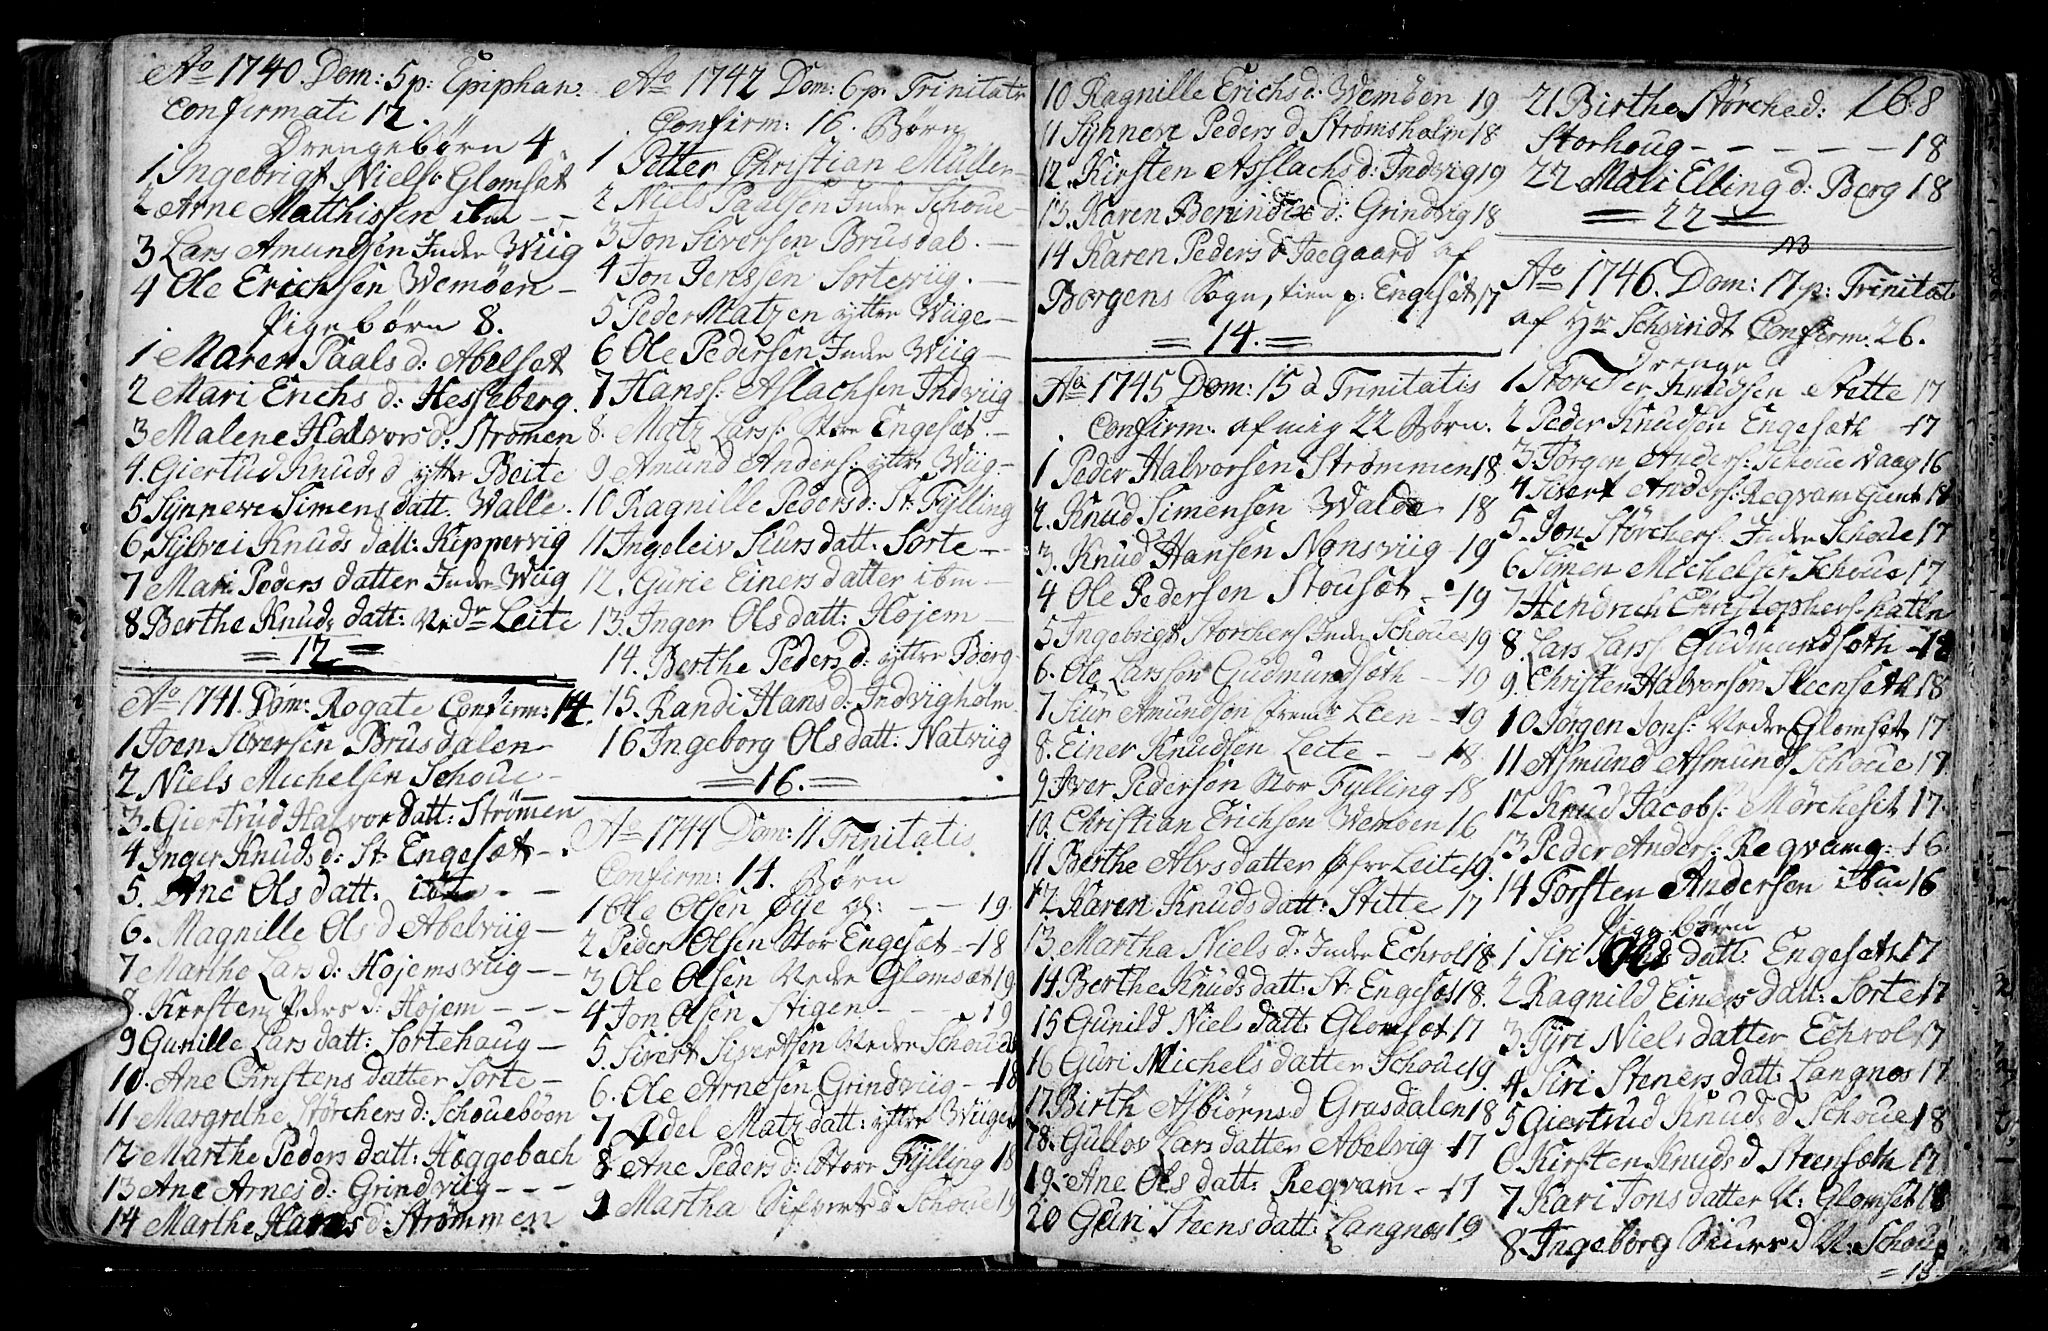 Ao 1740. Dom: 5 p: Epiphan:
Confirmati 12.
Drengebørn 4.
1 Ingebrigt Niels: Glomset
2 Arne Matthissen ibm - -
3 Lars Amundsen Indre Wiig
4 Ole Erichsen Wemöen -
Pigebørn 8.
1 Maren Paals d: Abelset
2 Mari Erichs d: Hesseberg.
3 Malene Halvors d: Strömen
4. Giertrud Knuds d ytter Beite
5 Synneve Simens datt. Walle.
6. Sylvei Knuds datt: Kippervig
7 Mari Peders datter Indre Wiig
8 Berthe Knuds datt: Nedr Leite
= 12 =
Ao 1741. Dom: Rogate Confirm: 14.
1 Joen Siversen Brusdalen
2 Niels Michelsen Schoue -
3. Giertrud Halvor datt: Strömen
4 Inger Knuds d: St: Engesæt -
5. Ane Ols datt: ibm - -
6. Magnille Ols d Abelviig -
7 Marthe Lars d: Højemsviig - -
8. Kirsten Peders d: Højem - - -
9 Gunille Lars datt: Sortehaug -
10. Ane Christens datter Sorte -
11 Margrethe Störchers d: Schouebøen
12 Marthe Peders datt: Høggebach
13 Ane Arnes d: Grindviig - - -
14 Marthe Hanes d: Strømmen
Ao 1742 Dom: 6 p. Trinitatis
Confirm: 16. Børn
1 Petter Christian Müller
2 Niels Paalsen Indre Schoue -
3 Jon Siversen Brusdal. -
4 Jon Jenssen Sorteviig. -
5 Peder Matzen yttre Wiige -
6 Ole Pedersen Indre Wiig -
7 Hanss: Aslachsen Indviig
8. Matz Larss: Store Engesæt. -
9 Amund Anders: yttre Wiig -
10 Ragnille Peders d: St: Fylling
11 Ingeleiv Siurs datt: Sorte - -
12. Gurie Einers datter ibm -
13. Inger Ols datt: Højem -
14. Berthe Peders d: yttre Berg
15. Randi Hans d: Indvigholm
16 Ingeborg Ols datt: Natviig
= 16. =
Ao 1744 Dom: 11 Trinitatis
Confirm: 14. Børn
1 Ole Olsen Øye gs: - - 19
2 Peder Olsen Stor Engesæt - 18
3 Ole Olsen Nedre Glomsæt 19
4 Jon Olsen Stigen - - - 19
5. Sivert Sivertsen Nedre Schoue
6. Ole Arnesen Grindviig - 18
7 Adel Matz datt: yttre Wiige
8 Ane Peders d: Store Fylling 18
9 Martha Sifverts d Schoue 19
10 Ragnille Erichs d: Wemöen 19
11 Synneve Peders d Strømsholm 18
12. Kirsten Asslachs d: Indvig 19
13. Karen Berindte d: Grindvig 18
14 Karen Peders d Jaegaard af
Borgens Sogn, tien p: Engeset 17
= 14. =
Ao 1745 Dom: 15 à Trinitatis
Confirm: af mig 22 Børn.
1 Peder Halvorsen Strømmen 18
2. Knud Simensen Walde 18
3. Knud Hansen Nonsviig - 19
4 Ole Pedersen Stousæt - 19
5 Ingebrigt Storchers Indre Schoue 19
6. Ole Larsson Gudmundsæth - 19
7 Siur Amundson frem Leen - 19
8. Einer Knudsen Leite - - 18
9 Iver Pedersen Stor Fylling - 18
10. Christian Erichsen Wemøen 16
11 Berthe Alvs datter Øfre Leite 19.
12 Karen Knuds datt: Stette 17
13. Martha Niels dr Indre Echrol 18
14 Berthe Knuds datt: St: Engesæs 18.
15 Gunild Niels datt: Glomsæt 17
16 Guri Michels datter Schoue 19
17 Birth Asbiörns d Grasdalen 18
18. Gullov Lars datter Abelvig - 17
19. Ane Ols datt: Reqvam - 17
20 Guri Steens datt: Langnos 19
21 Birthe Störche d: 168
Storhoug - - - - - 18
22 Mali Elling d: Berg 18
= 22 =
NB
Ao 1746. Dom: 17 p: Trinitat
af Hr Schmidt Confirm: 26.
Drenge
1 Store Knudsen Stette 17
2 Peder Knudsen Engesæth - 17
3 Jörgen Anders: Schoue Waag 16
4 Sivert Anders: Reqvam 18
5. Jon Störchers: Indre Schoue 17
6 Simen Michelsen Schoue 17
7 Hendrich Christophers:
8. Lars Larss: Gudmundsæth - 18
9. Christen Halvorson Steensæth 18
10 Jørgen Jons: Nedre Glomset 17
11 Asmund Asmunds Schoue 17
12 Knud Jacobs: Mörcheset 17.
13 Peder Anders: Reqvamg: - 16.
14 Torsten Andersen ibm 16
Pigebørn
1 Siri Ols datt: Engesæt 17
2 Ragnild Einers datt: Sorte 17
3. Tyri Niels datter Echrol 17
4 Siri Steners datt: Langnos 17
5 Giertrud Knuds d Schoue 18
6 Kirsten Knuds d Steensæth 17
7 Kari Jons datter N: Glomset 18
8. Ingeborg Siurs d N: Schoue
= 18